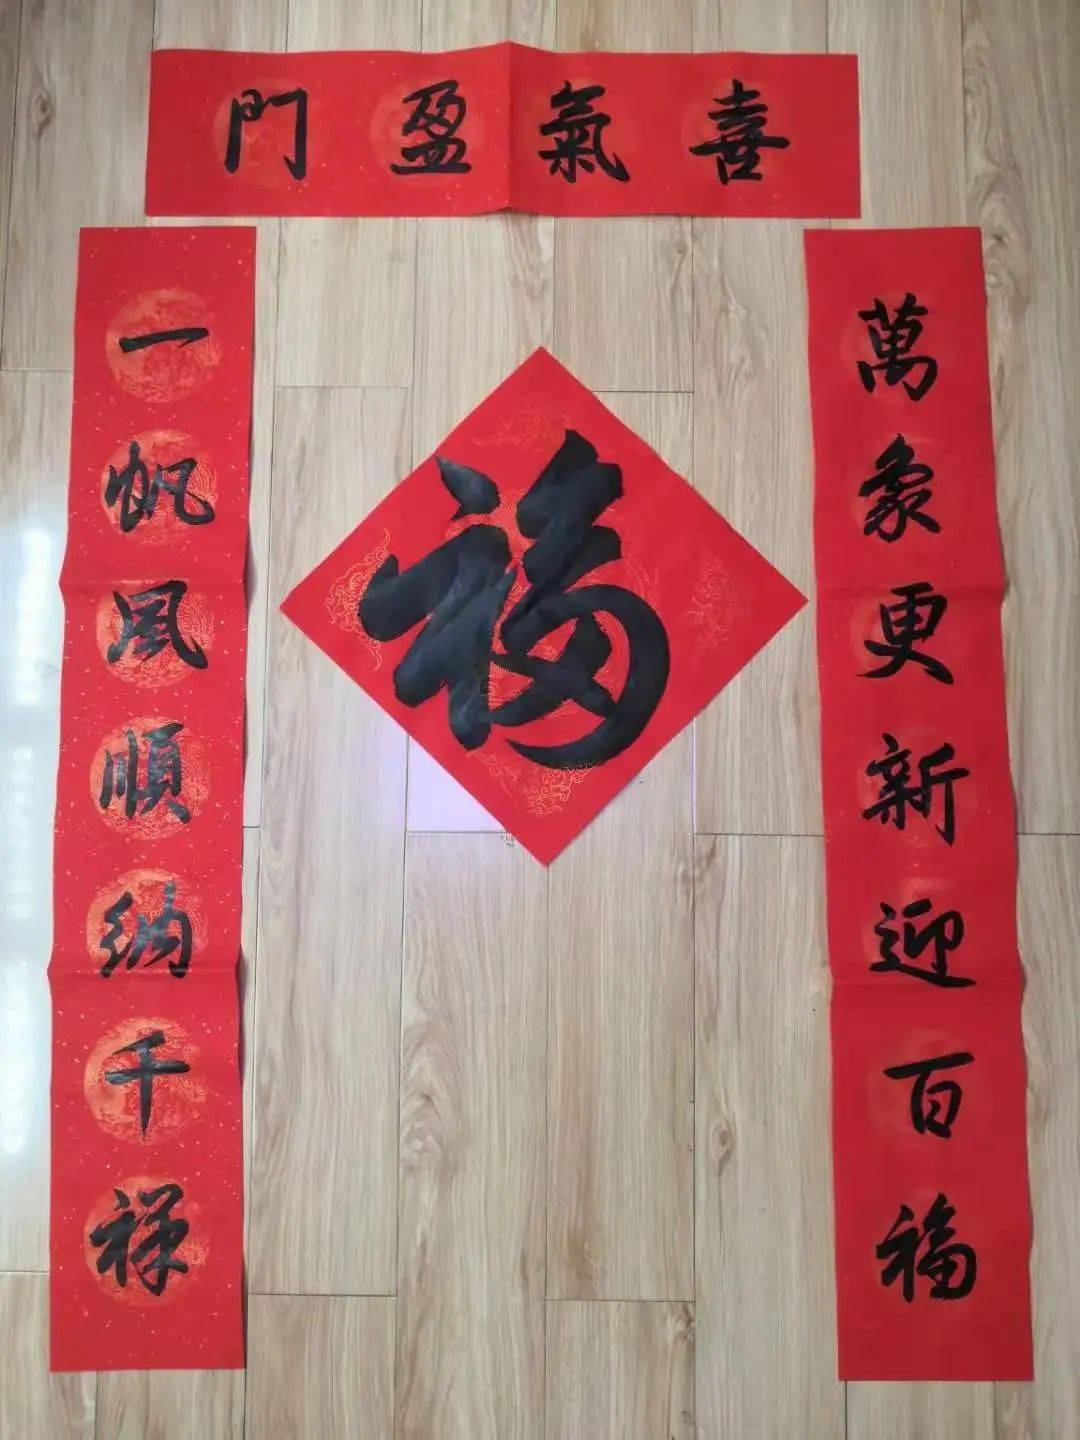 喜氣盈門
萬象更新迎百福
一帆風順納千祥
福